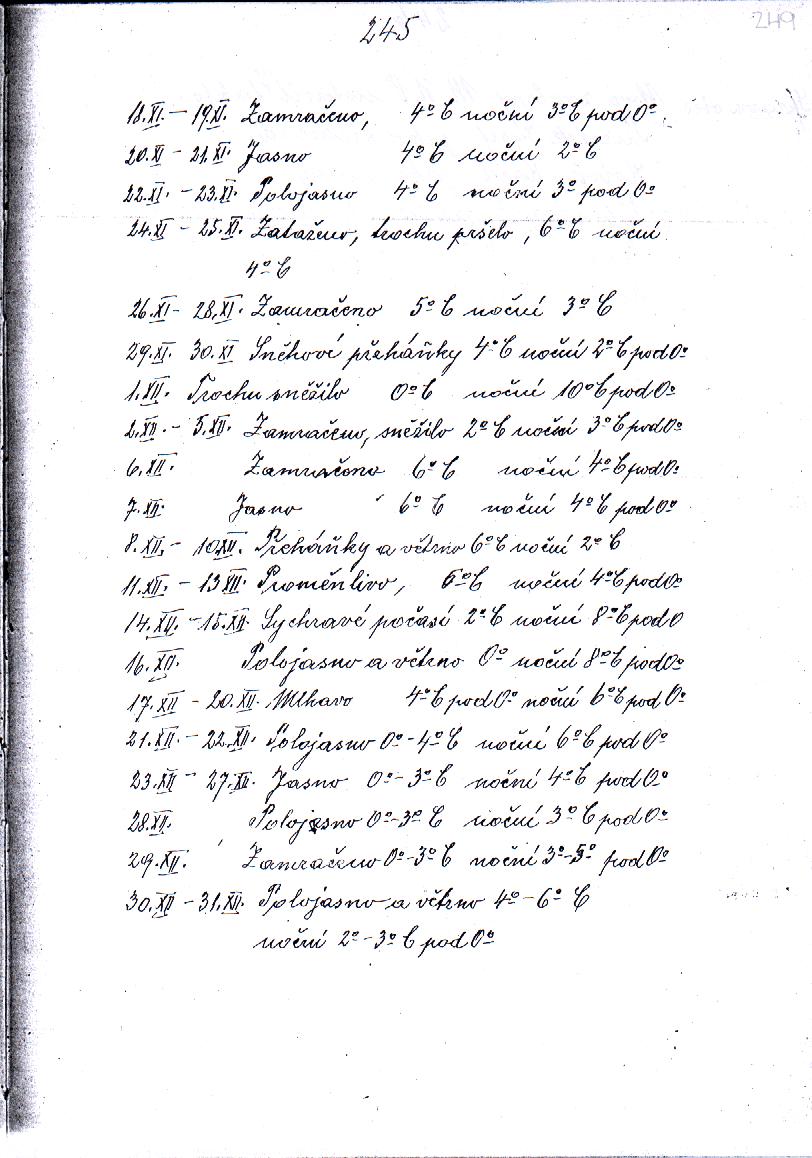 245
249
18.XI. - 19.XI. Zamračeno, 4°C noční 3°C pod 0°.
20.XI - 21.XI. Jasno 4°C noční 2°C
22.XI. - 23.XI. Polojasno 4°C noční 3° pod 0°
24.XI - 25.XI. Zataženo, trochu pršelo, 6°C noční
4°C
26.XI - 28.XI. Zamračeno 5°C noční 3°C
29.XI. 30.XI Sněhové přeháňky 4°C noční 2°C pod 0°
1.XII. Trochu sněžilo 0°C noční 10°C pod 0°
2.XII. - 5.XII. Zamračeno, sněžilo 2°C noční 3°C pod 0°
6.XII. Zamračeno 6°C noční 4°C pod 0°
7.XII. Jasno 6°C noční 4°C pod 0°
8.XII. - 10.XII. Přeháňky a větrno 6°C noční 2°C
11.XII. - 13 XII. Proměnlivo, 6°C noční 4°C pod 0°
14.XII. - 15.XII. Sychravé počasí 2°C noční 8°C pod 0
16.XII. Polojasno a větrno 0° noční 8°C pod 0°
17.XII - 20.XII. Mlhavo 4°C pod 0° noční 6°C pod 0°
21.XII. - 22.XII. Polojasno 0° - 4°C noční 6°C pod 0°
23.XII - 27.XII. Jasno 0° - 3°C noční 4°C pod 0°
28.XII. Polojasno 0° - 3°C noční 3°C pod 0°
29.XII. Zamračeno 0° - 3°C noční 3° - 5° pod 0°
30.XII - 31.XII. Polojasno a větrno 4° - 6°C
noční 2° - 3°C pod 0°